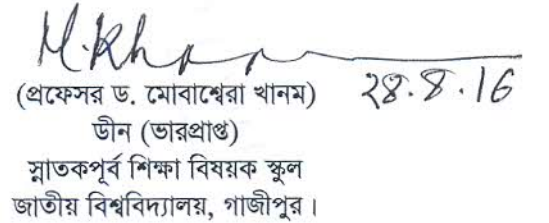 M. Khan
২৪.৪.১৬
(প্রফেসর ড. মোবাশ্বেরা খানম)
ডীন (ভারপ্রাপ্ত)
স্নাতকপূর্ব শিক্ষা বিষয়ক স্কুল
জাতীয় বিশ্ববিদ্যালয়, গাজীপুর।